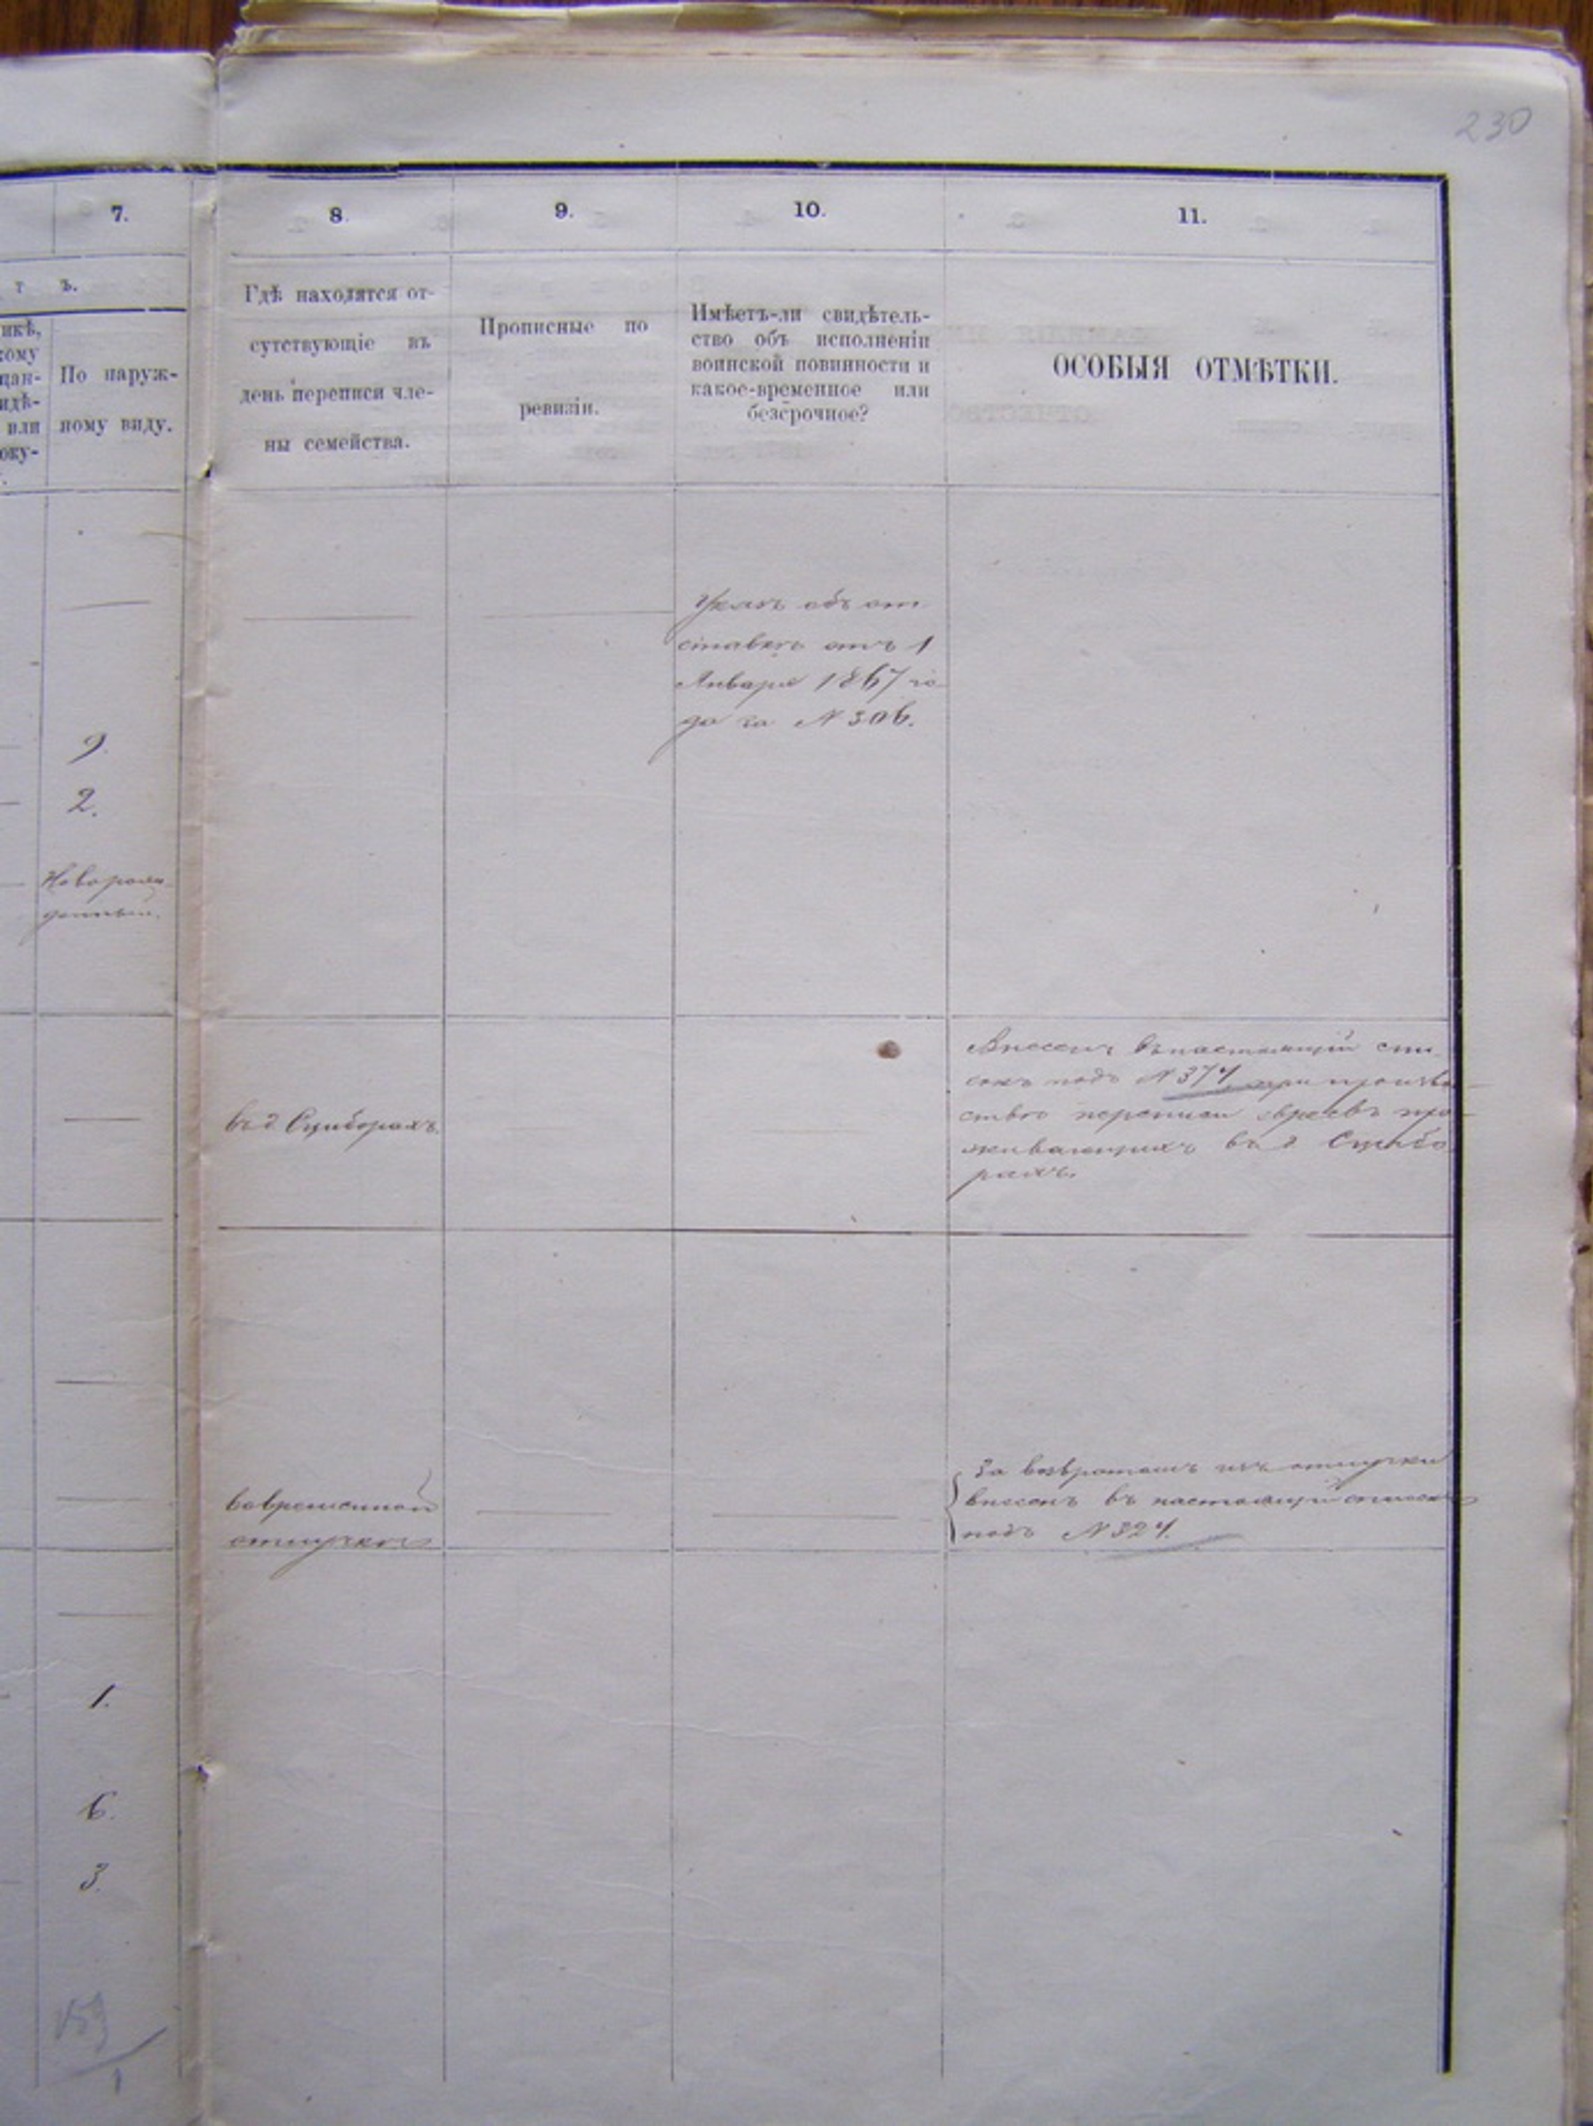 230
7.
8
9.
10.
11.
т ъ.
икѣ,
кому
цан-
идѣ-
или
оку-
По наруж-
ному виду.
Гдѣ находятся от-
сутствующіе въ
день переписи чле-
ны семейства.
Прописные по
ревизіи.
Имѣетъ-ли свидѣтель-
ство объ исполненіи
воинской повинности и
какое-временное или
безсрочное?
ОСОБЫЯ ОТМѢТКИ.
Указъ объ от
ставкѣ отъ 1
Января 1867 го
да за № 306.
9.
2.
Новорож
денный.
въ д Сциборахъ.
Внесенъ въ настоящій спи
сокъ подъ № 374 при производ
ствѣ переписи евреевъ про
живающихъ въ д Сцибо
рахъ.
во временной
отлучкѣ
За возвратомъ изъ отлучки
внесенъ въ настоящій списокъ
подъ № 324.
1.
6.
3.
1